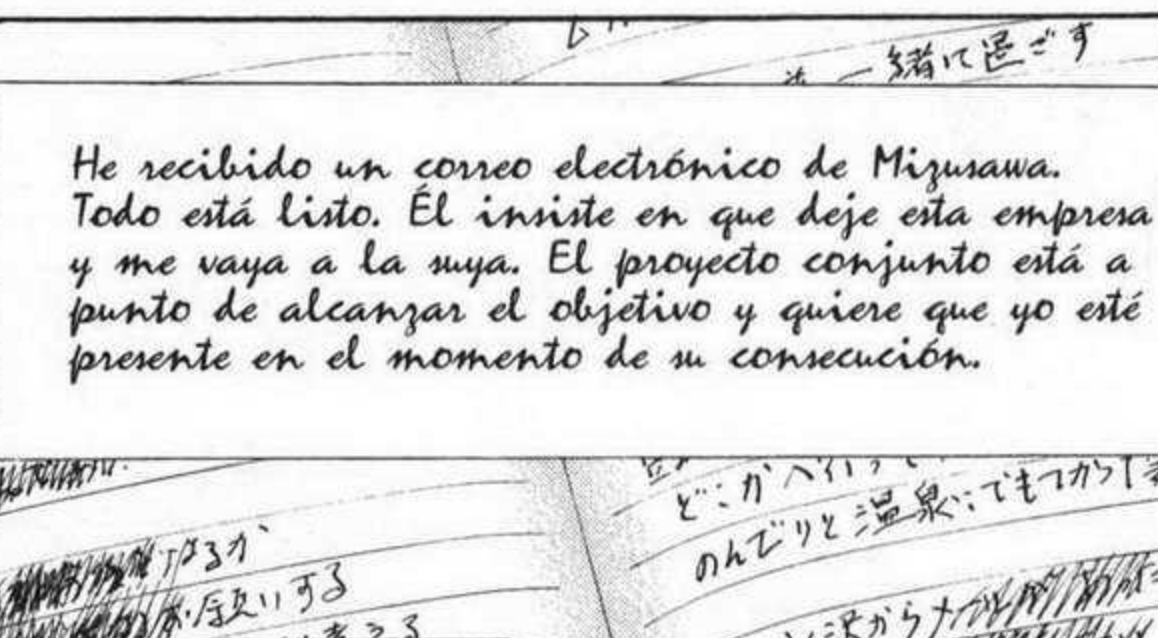 一緒に過ごす
He recibido un correo electrónico de Mizusawa.
Todo está listo. Él insiste en que deje esta empresa
y me vaya a la suya. El proyecto conjunto está a
punto de alcanzar el objetivo y quiere que yo esté
presente en el momento de su consecución.
なるか
お願いする
考える
どこかへ行って
のんびりと温泉にでもつかって
沢からメールがあった